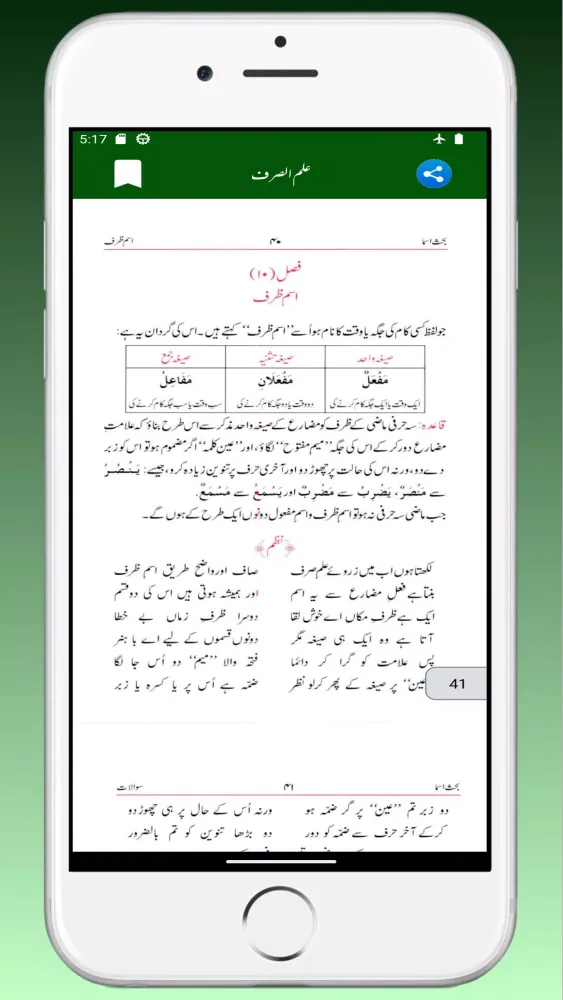 5:17
علم الصرف
بحث اسما ۴۰ اسم ظرف
فصل (۱۰)
اسم ظرف
جو لفظ کسی کام کی جگہ یا وقت کا نام ہو اُسے ’’اسم ظرف‘‘ کہتے ہیں۔ اس کی گردان یہ ہے:
صیغہ واحد صیغہ تثنیہ صیغہ جمع
مَفْعَلٌ مَفْعَلَانِ مَفَاعِلُ
ایک وقت یا ایک جگہ کام کرنے کی دو وقت یا دو جگہ کام کرنے کی سب وقت یا سب جگہ کام کرنے کی
قاعدہ: سہ حرفی ماضی کے ظرف کو مضارع کے صیغہ واحد مذکر سے اس طرح بناؤ کہ علامتِ
مضارع دور کر کے اس کی جگہ ’’میم مفتوح‘‘ لگاؤ، اور ’’عین کلمہ‘‘ اگر مضموم ہو تو اس کو زبر
دے دو، ورنہ اس کی حالت پر چھوڑ دو اور آخری حرف پر تنوین زیادہ کرو، جیسے: یَنْصُرُ
سے مَنْصَرٌ، یَضْرِبُ سے مَضْرِبٌ اور یَسْمَعُ سے مَسْمَعٌ.
جب ماضی سہ حرفی نہ ہو تو اسم ظرف و اسم مفعول دونوں ایک طرح کے ہوں گے۔
نظم
لکھتا ہوں اب میں ز روئے علم صرف صاف اور واضح طریق اسم ظرف
بنتا ہے فعل مضارع سے یہ اسم اور ہمیشہ ہوتی ہیں اس کی دو قسم
ایک ہے ظرفِ مکاں اے خوش لقا دوسرا ظرفِ زماں بے خطا
آتا ہے وہ ایک ہی صیغہ مگر دونوں قسموں کے لیے اے با ہنر
پس علامت کو گرا کر دائما فتحہ والا ’’میم‘‘ دو اُس جا لگا
عین‘‘ پر صیغہ کے پھر کر لو نظر ضمّہ ہے اُس پر یا کسرہ یا زبر
41
بحث اسما ۴۱ سوالات
دو زبر تم ’’عین‘‘ پر گر ضمّہ ہو ورنہ اُس کے حال پر ہی چھوڑ دو
کر کے آخر حرف سے ضمّہ کو دور دو بڑھا تنوین کو تم بالضرور